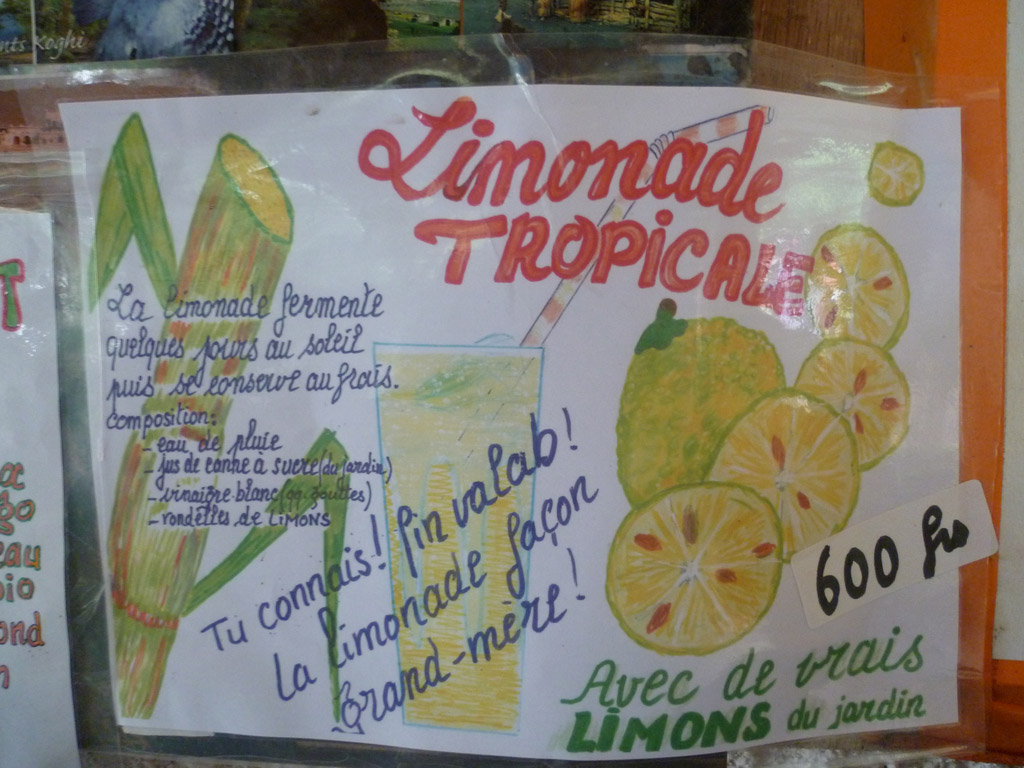 nts Koghi
Limonade
TROPICALE
La limonade fermente
quelques jours au soleil
puis se conserve au frais.
composition:
- eau de pluie
- jus de canne à sucre (du jardin)
- vinaigre blanc (qq. gouttes)
- rondelles de LIMONS
Tu connais! fin valab!
la limonade façon
Grand-mère!
600 frs
Avec de vrais
LIMONS du jardin
T
a
go
eau
oio
ond
n